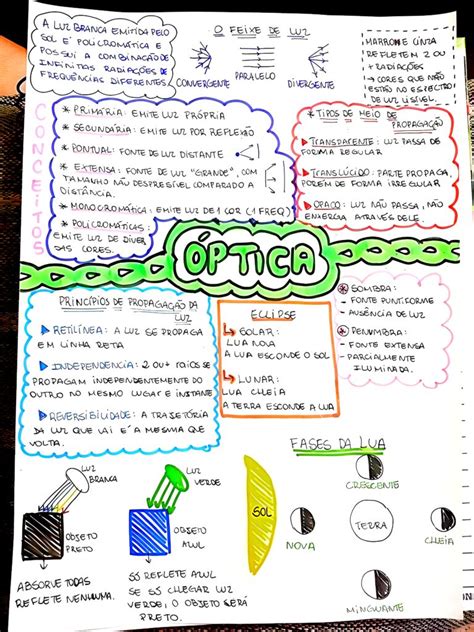 A LUZ BRANCA EMITIDA PELO
SOL É POLICROMÁTICA E
POSSUI A COMBINAÇÃO DE
INFINITAS RADIAÇÕES DE
FREQUÊNCIAS DIFERENTES.
O FEIXE DE LUZ
CONVERGENTE
PARALELO
DIVERGENTE
MARROM E CINZA
REFLETEM 2 OU
+ RADIAÇÕES
→ CORES QUE NÃO
ESTÃO NO ESPECTRO
DE LUZ VISÍVEL.
CONCEITOS
* PRIMÁRIA: EMITE LUZ PRÓPRIA
* SECUNDÁRIA: EMITE LUZ POR REFLEXÃO
* PONTUAL: FONTE DE LUZ DISTANTE
* EXTENSA: FONTE DE LUZ "GRANDE", COM
TAMANHO NÃO DESPRESÍVEL COMPARADO A
DISTÂNCIA.
* MONOCROMÁTICA: EMITE LUZ DE 1 COR (1 FREQ)
* POLICROMÁTICAS:
EMITE LUZ DE DIVER
SAS CORES.
* TIPOS DE MEIO DE
PROPAGAÇÃO
TRANSPARENTE: LUZ PASSA DE
FORMA REGULAR
TRANSLÚCIDO: PARTE PROPAGA,
PORÉM DE FORMA IRREGULAR
OPACO: LUZ NÃO PASSA, NÃO
ENXERGA ATRAVÉS DELE.
ÓPTICA
PRINCÍPIOS DE PROPAGAÇÃO DA
LUZ
RETILÍNEA: A LUZ SE PROPAGA
EM LINHA RETA
INDEPENDENCIA: 2 OU + RAIOS SE
PROPAGAM INDEPENDENTEMENTE DO
OUTRO NO MESMO LUGAR E INSTANTE
REVERSIBILIDADE: A TRAJETÓRIA
DA LUZ QUE VAI É A MESMA QUE
VOLTA.
ECLIPSE
SOLAR:
LUA NOVA
A LUA ESCONDE O SOL
LUNAR:
LUA CHEIA
A TERRA ESCONDE A LUA
* SOMBRA:
- FONTE PUNTIFORME
- AUSÊNCIA DE LUZ
* PENUMBRA:
- FONTE EXTENSA
- PARCIALMENTE
ILUMINADA.
LUZ
BRANCA
OBJETO
PRETO
ABSORVE TODAS
REFLETE NENHUMA.
LUZ
VERDE
OBJETO
AZUL
SÓ REFLETE AZUL
SE SÓ CHEGAR LUZ
VERDE, O OBJETO SERÁ
PRETO.
FASES DA LUA
CRESCENTE
SOL
NOVA
TERRA
CHEIA
MINGUANTE